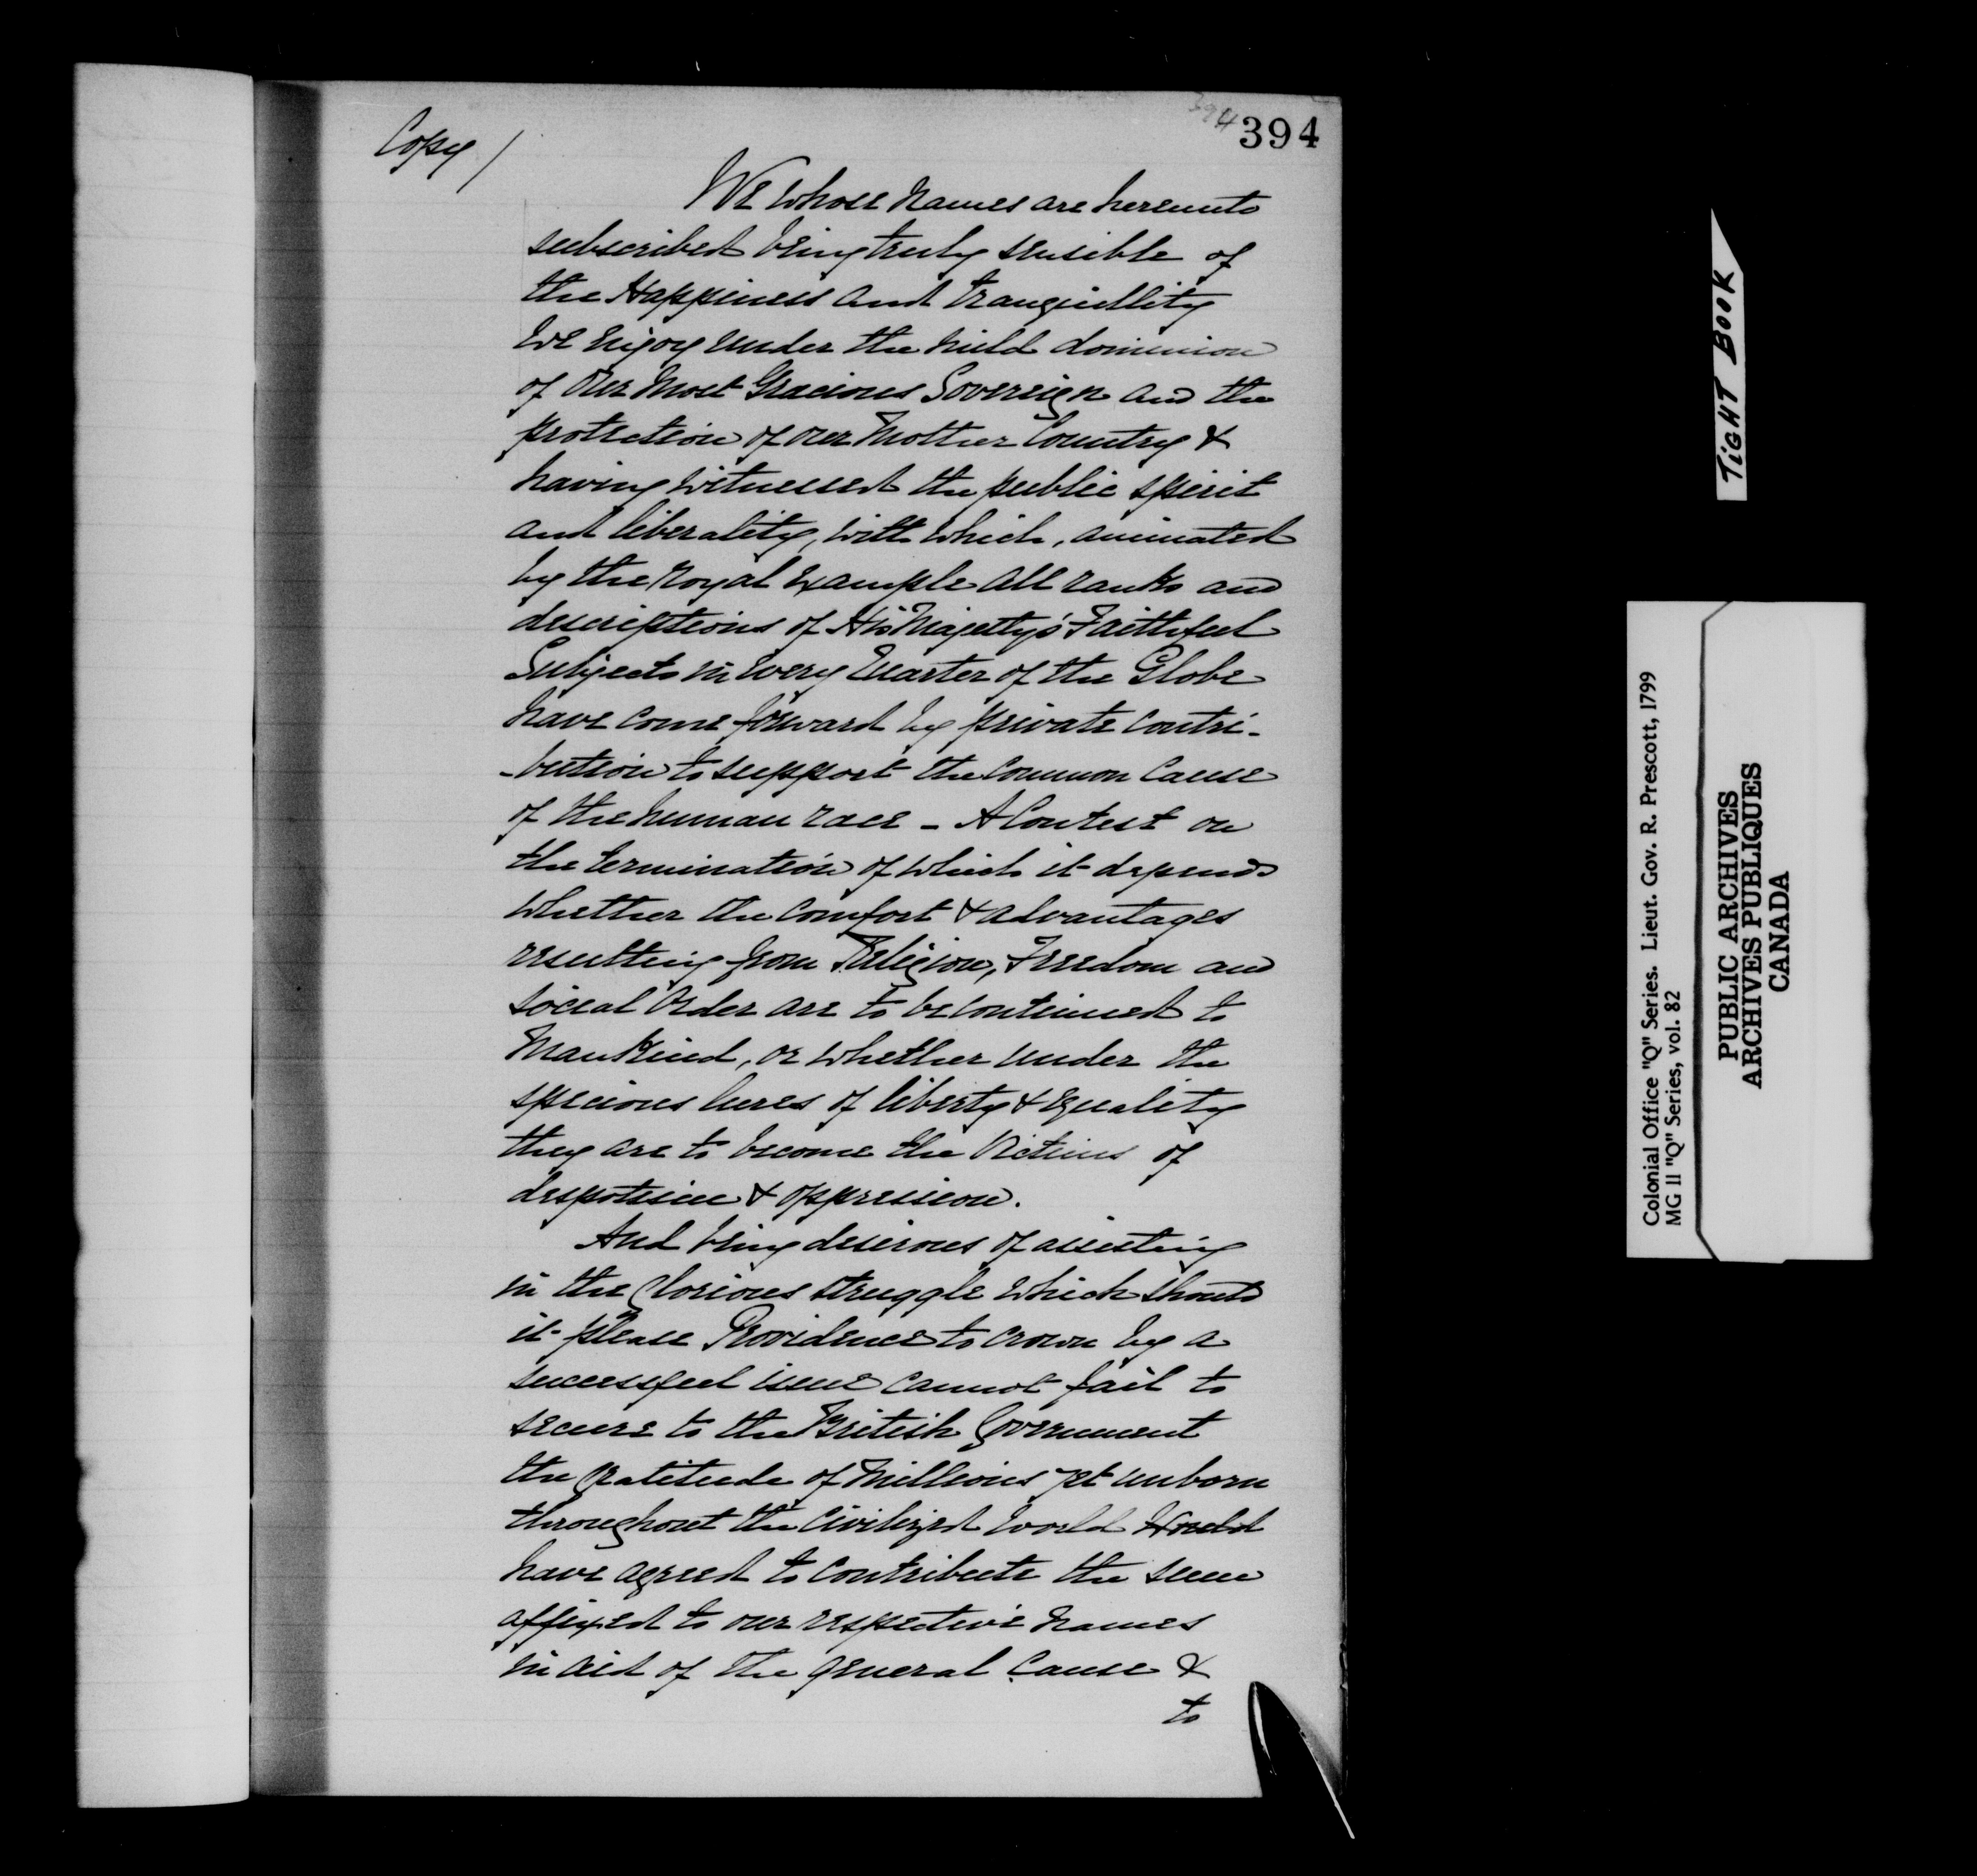 Copy /
394
394
We whose names are hereunto
subscribed being truly sensible of
the Happiness and tranquillity
we enjoy under the mild dominion
of our most Gracious Sovereign and the
protection of our Mother Country &
having witnessed the public spirit
and liberality, with which, animated
by the royal example all ranks and
descriptions of His Majesty's Faithful
Subjects in every Quarter of the Globe
have come forward by private contri-
-bution to support the common cause
of the human race - A Contest on
the termination of which it depends
whether the comfort & advantages
resulting from Religion, Freedom and
social Order are to be continued to
Mankind, or whether under the
specious lures of liberty & equality
they are to become the Victims of
despotism & oppression.
And being desirous of assisting
in the Glorious struggle which should
it please Providence to crown by a
successful issue cannot fail to
secure to the British Government
the Gratitude of Millions yet unborn
throughout the Civilized world would
have agreed to contribute the sum
affixed to our respective names
in aid of the general cause &
to
TIGHT BOOK
Colonial Office "Q" Series. Lieut. Gov. R. Prescott, 1799
MG 11 "Q" Series, vol. 82
PUBLIC ARCHIVES
ARCHIVES PUBLIQUES
CANADA